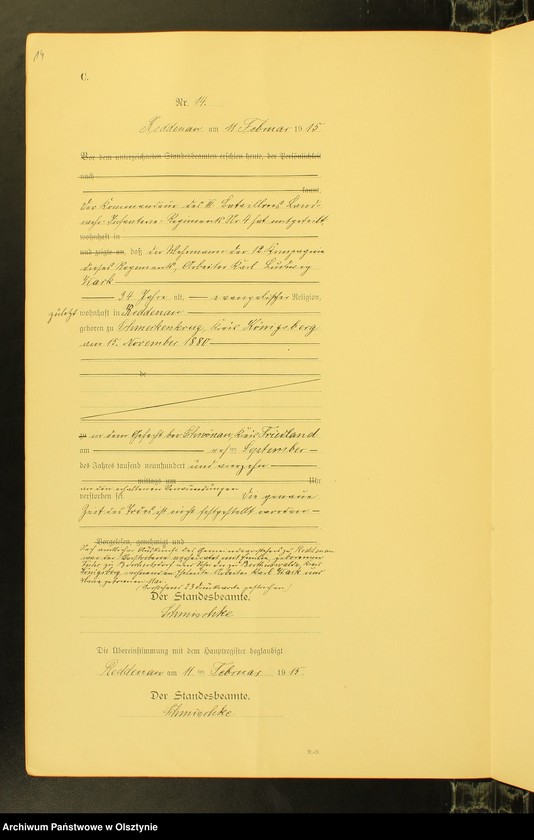 14
C.
Nr. 14.
Reddenau am 11. Februar 1915.
Vor dem unterzeichneten Standesbeamten erschien heute, der Persönlichkeit
nach
kannt,
der Kommandeur des III. Bataillons Land-
wehr-Infanterie-Regiments Nr. 4 hat mitgeteilt,
wohnhaft in
und zeigte an, daß der Wehrmann der 12. Kompagnie
dieses Regiments, Arbeiter Karl Ludwig
Mark
34 Jahre alt, evangelischer Religion,
zuletzt wohnhaft in Reddenau
geboren zu Kreis Königsberg
am 15. November 1880
be
in dem Gefecht bei Kreis Friedland
am September
des Jahres tausend neunhundert und vierzehn
mittags um Uhr
an den erhaltenen Verwundungen
verstorben sei. Die genaue
Zeit des Todes ist nicht festgestellt worden
Vorgelesen, genehmigt und
Nach amtlicher Auskunft des Gemeindevorstehers zu Reddenau
war der Verstorbene verheiratet mit geborenen
zu Kreis
Königsberg Arbeiter Karl Mark und
geborenen
(Vorstehend 23 Druckworte gestrichen)
Der Standesbeamte.
Schmischke
Die Übereinstimmung mit dem Hauptregister beglaubigt
Reddenau am 11. ten Februar 1915.
Der Standesbeamte.
Schmischke
Archiwum Państwowe w Olsztynie